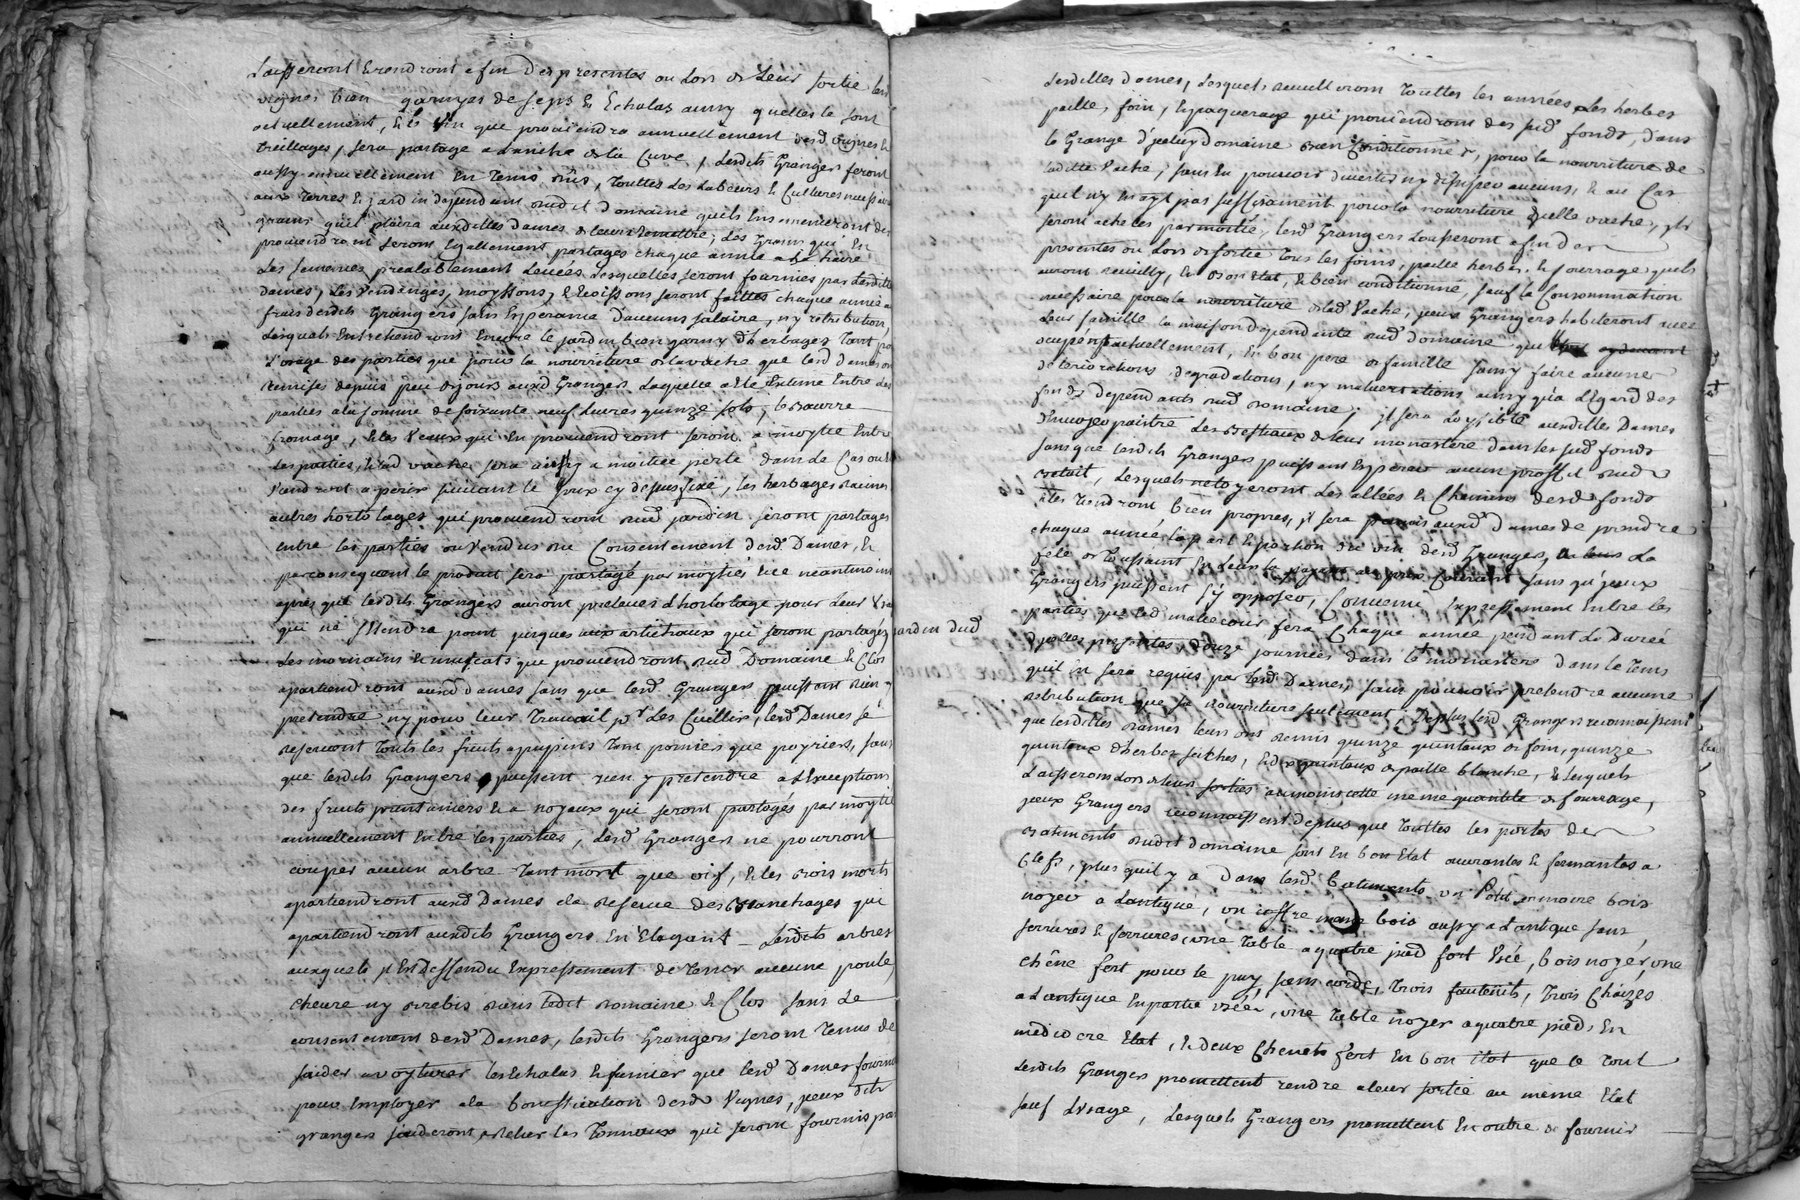 Laisseront & rendront a fin des presentes ou Lors de Leur sortie les
vignes bien garnyes de seps & Echalas ainsy quelles le sont
actuellement, & le vin que proviendra annuellement desd. vignes &
treillages, sera partagé a L'anche de la Cuve, Lesdits Grangers feront
aussy annuellement En tems dûs, Touttes Les Labeurs & Cultures necessaires
aux Terres & jardin dependant dudit Domaine quils Ensemenceront des
grains quil plaira auxdittes dames de leur remettre, Les Grains qui En
proviendront seront Egallement partagés chaque année a
Les semences prealablement Levées Lesquelles seront fournies par Lesdittes
dames, Les Vendanges, moyssons, & seront faittes chaque année au
frais desdits Grangers sans Esperance D'aucuns salaire, ny retribution,
Lesquels Entretiendront Encore le jardin bien garny D'herbages Tant pour
L'usage des parties que pour la nourriture de la vache que lesd. dames ont
remises depuis peu de jours auxd. Grangers Laquelle a été Estimé Entre Les
parties a la somme de soixante neuf Livres quinze sols, le Beurre
fromage, & les Veaux qui En proviendront seront a moytié Entre
Les parties, & lad. vache sera ainsy a moitiée perte dans le Cas ou Elle
viendroit a perir suivant le prix cy dessus fixé, les herbages racines
autres hortolages qui proviendront dud. jardin seront partagés
entre les parties ou Vendus du Consentement desd. Dames, &
par consequent le produit sera partagé par moytiés Ce neantmoins
apres que lesdits Grangers auront prelevés d'hortolage pour Leur Usage
qui ne s'Etendra point jusques aux artichaux qui seront partagés jardin dud.
Les & muscats que proviendront dud. Domaine & Clos
apartiendront auxd. dames sans que lesd. Grangers puissent rien y
pretendre ny pour leur Travail pr. Les Cuëillir, lesd. Dames se
reservent Touts les fruits a peppins Tant pomiers que poyriers, sans
que lesdits Grangers puissent rien y pretendre a L'Exceptions
des fruits printaniers & a noyaux qui seront partagés par moytié
annuellement Entre les parties, Lesd. Granger ne pourront
couper aucun arbre Tant mort que vif, & les bois morts
apartiendront auxd. Dames a la Reserve des Branchages qui
apartiendront auxdits Grangers En Elagant Lesdits arbres
auxquels jl Est Deffendu Expressement de Tenir aucune poule,
chevre ny Brebis dans ledit Domaine & Clos sans Le
consentement desd. Dames, lesdits Grangers seront Tenus de
faider a voyturer les Echalas & fumier que lesd. Dames fourniront
pour Employer a la bonification desd. Vignes, jceux dits
grangers jaideront a relier les Tonneaux qui seront fournis par
Lesdittes dames, Lesquels recueilliront Touttes les années Les herbes
paille, foin, & paquerage qui proviendront des sud. fonds, dans
la Grange d'jceluy domaine bien Conditionné, pour la nourriture de
laditte Vache, sans En pouvoir divertir ny dissiper aucuns, & au Cas
quil n'y En ayt pas suffisament pour la nourriture d'jcelle vache, jls
seront achetés par moitié, lesd. Grangers Laisseront a fin des
presentes ou Lors de sortie Tous les foins, paille herbes, & fourrage quils
auront recuilly, & en bon etat, & bien conditionné, sauf la Consommation
necessaire pour la nourriture de lad. Vache, jceux Grangers habiteront avec
Leur famille la maison dependante dud. domaine qu'
ocupent actuellement, En bon pere de famille sans y faire aucunes
deteriorations degradations, ny malversations, ainsy qua L'Egard des
fonds dependants dud. domaine, jl sera Loysible auxdittes Dames
d'envoyer paitre Les Bestiaux de leur monastere dans les sud. fonds
sans que lesdits Grangers puissent Esperer aucun proffit dud.
betail, Lesquels netoyeront Les allées & Chemins desd. fonds
& les Tiendront bien propres, jl sera permis auxd. dames de prendre
chaque année la part & portion du vin desd. Grangers, La
fete de Toussaint En Leur payant au prix Courant sans que jceux
Grangers puissent s'y opposer, Convenu Expressement Entre les
parties que led. fera Chaque année pendant La Durée
d'jcelles presentes, douze journées dans Le monastere dans le tems
quil En sera requis par lesd. Dames, sans pouvoir pretendre aucune
retribution que sa nourriture seulement, De plus lesd. Grangers reconnoissent
que lesdittes dames leurs ont remis quinze quintaux de foin, quinze
quintaux d'herbes seiches, & dix quintaux de paille blanche, & Lesquels
Laisseront Lors de leur sorties au moins cette meme quantité de fourrage,
jceux Grangers reconnoissent de plus que touttes les portes des
Batiments dudit domaine sont En bon Etat ouvrantes & fermantes a
Clefs, plus quil y a dans lesd. batiments un Petit armoire bois
noyer a L'antique, un coffre meme bois aussy a L'antique sans,
serrures & ferrures, une table a quatre pied fort Usée, bois noyer, une
chêne fert pour le puy, sans corde, trois fauteuils, trois Chaizes
a L'antique En partie Usée, une table noyer a quatre pieds En
mediocre Etat, & deux Chenets fert En bon Etat que le tout
Lesdits Grangers promettent rendre a leur sortie au meme Etat
sauf L'Usage, Lesquels Grangers promettent En outre de fournir